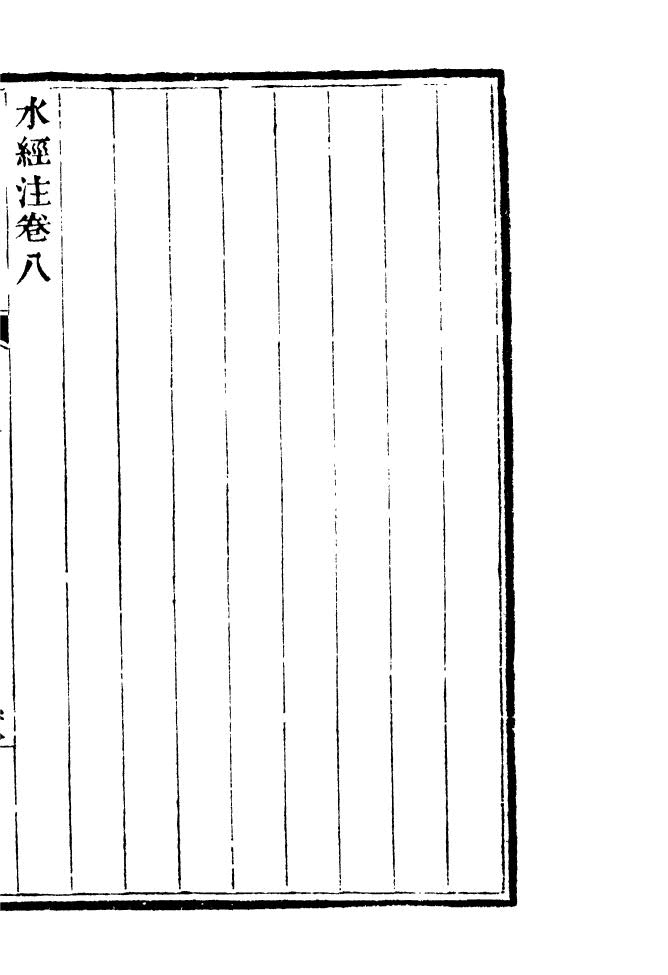 水經注卷八